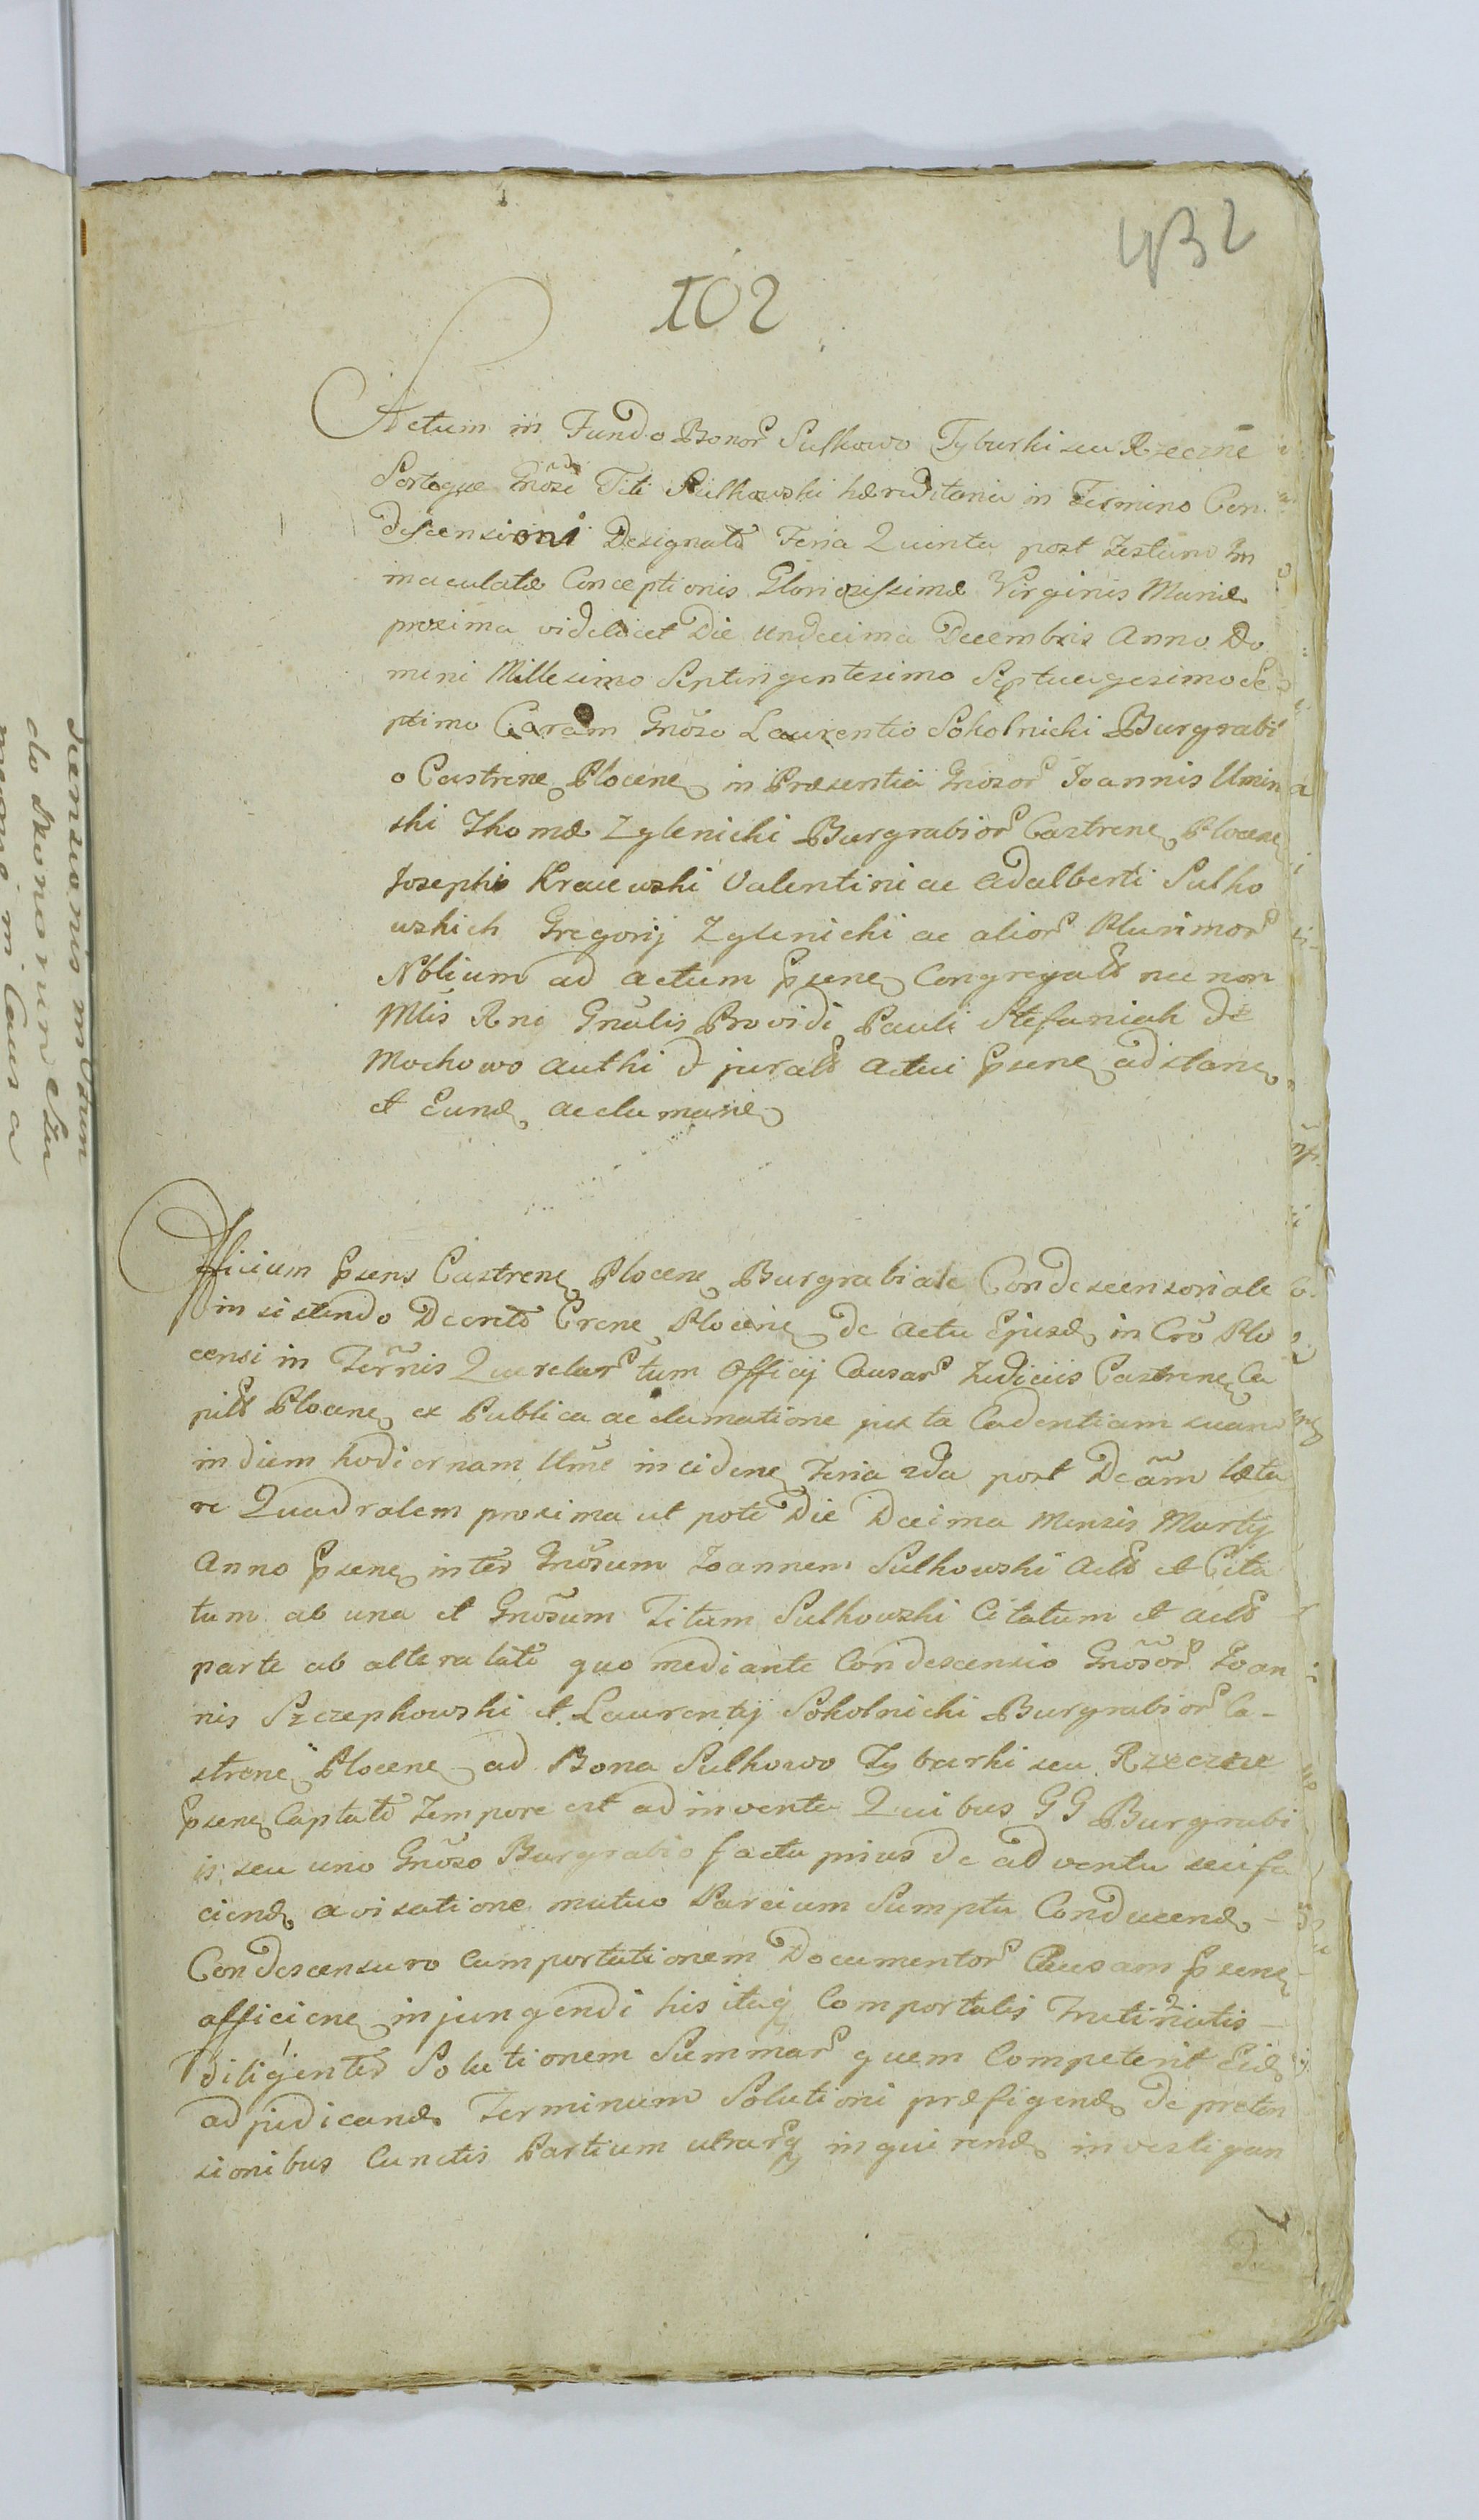 432
102
Actum in Fundo Bonor Sulkowo Tyburki seu Rzeczne
Sortoque Gnosi Titi Sulkowski hæreditaria in Termino Con
descensioni Designato Feria Quinta post Festum Im
maculatæ Conceptionis Gloriosissimæ Virginis Mariæ
proxima videlicet Die Undecima Decembris Anno Do
mini Millesimo Septingentesimo Septuagesimo Se
ptimo Coram Gnõso Laurentio Sokolnicki Burgrabi
o Castrene Plocene in Præsentia Gnosor Joannis Umin
ski Thomæ Zglenicki Burgrabior Castrene Plocene
Josephi Kraiewski Valentini ac Adalberti Sulko
wskich Gregorij Zglenicki ac alior Plurimor
Nobilium ad actum psene Congregato nec non
Mlis Rni Gnalis Providi Pauli Stefaniak de
Mochowo Authi & jurato Actui psene adstane
et Eund acclamane
Officium psens Castrene Plocene Burgrabiale Condescensoriale
insistendo Decreto Crene Plocene de Actu Ejusd in Crõ Plo
censi in Termis Querelar tum Officij Causar Judiciis Castrene Ca
pito Plocene ex Publica acclamatione juxta Cadentiam suam
in diem hodiernam Ume incidene Feria 2da post Dcãm læta
re Quadralem proxima ut pote Die Decima Mensis Martij
Anno psene inter Gnõsum Joannem Sulkowski Acto et Cita
tum ab una et Gnõsum Titum Sulkowski Citatum et acto
parte ab altera lato quo mediante Condescensio Gnõsor Joan
nis Szczepkowski et Laurentij Sokolnicki Burgrabior Ca-
strene Plocene ad Bona Sulkowo Tyburki seu Rzeczne
psene Captato Tempore est adinventa Quibus GG Burgrabi
is seu uno Gnõso Burgrabio facta prius de adventu sui fa
ciend avisatione mutuo Parcium Sumptu Conducend -
Condescensuro Comportationem Documentor Causam psene
afficiene injungendi his itaq Comportatis Trutinatis -
diligenter Solutionem Summar quem Competerit Eid
adjudicand Terminum Solutioni præfigend de preten
sionibus Cunctis Partium utrarq inquirend investigan